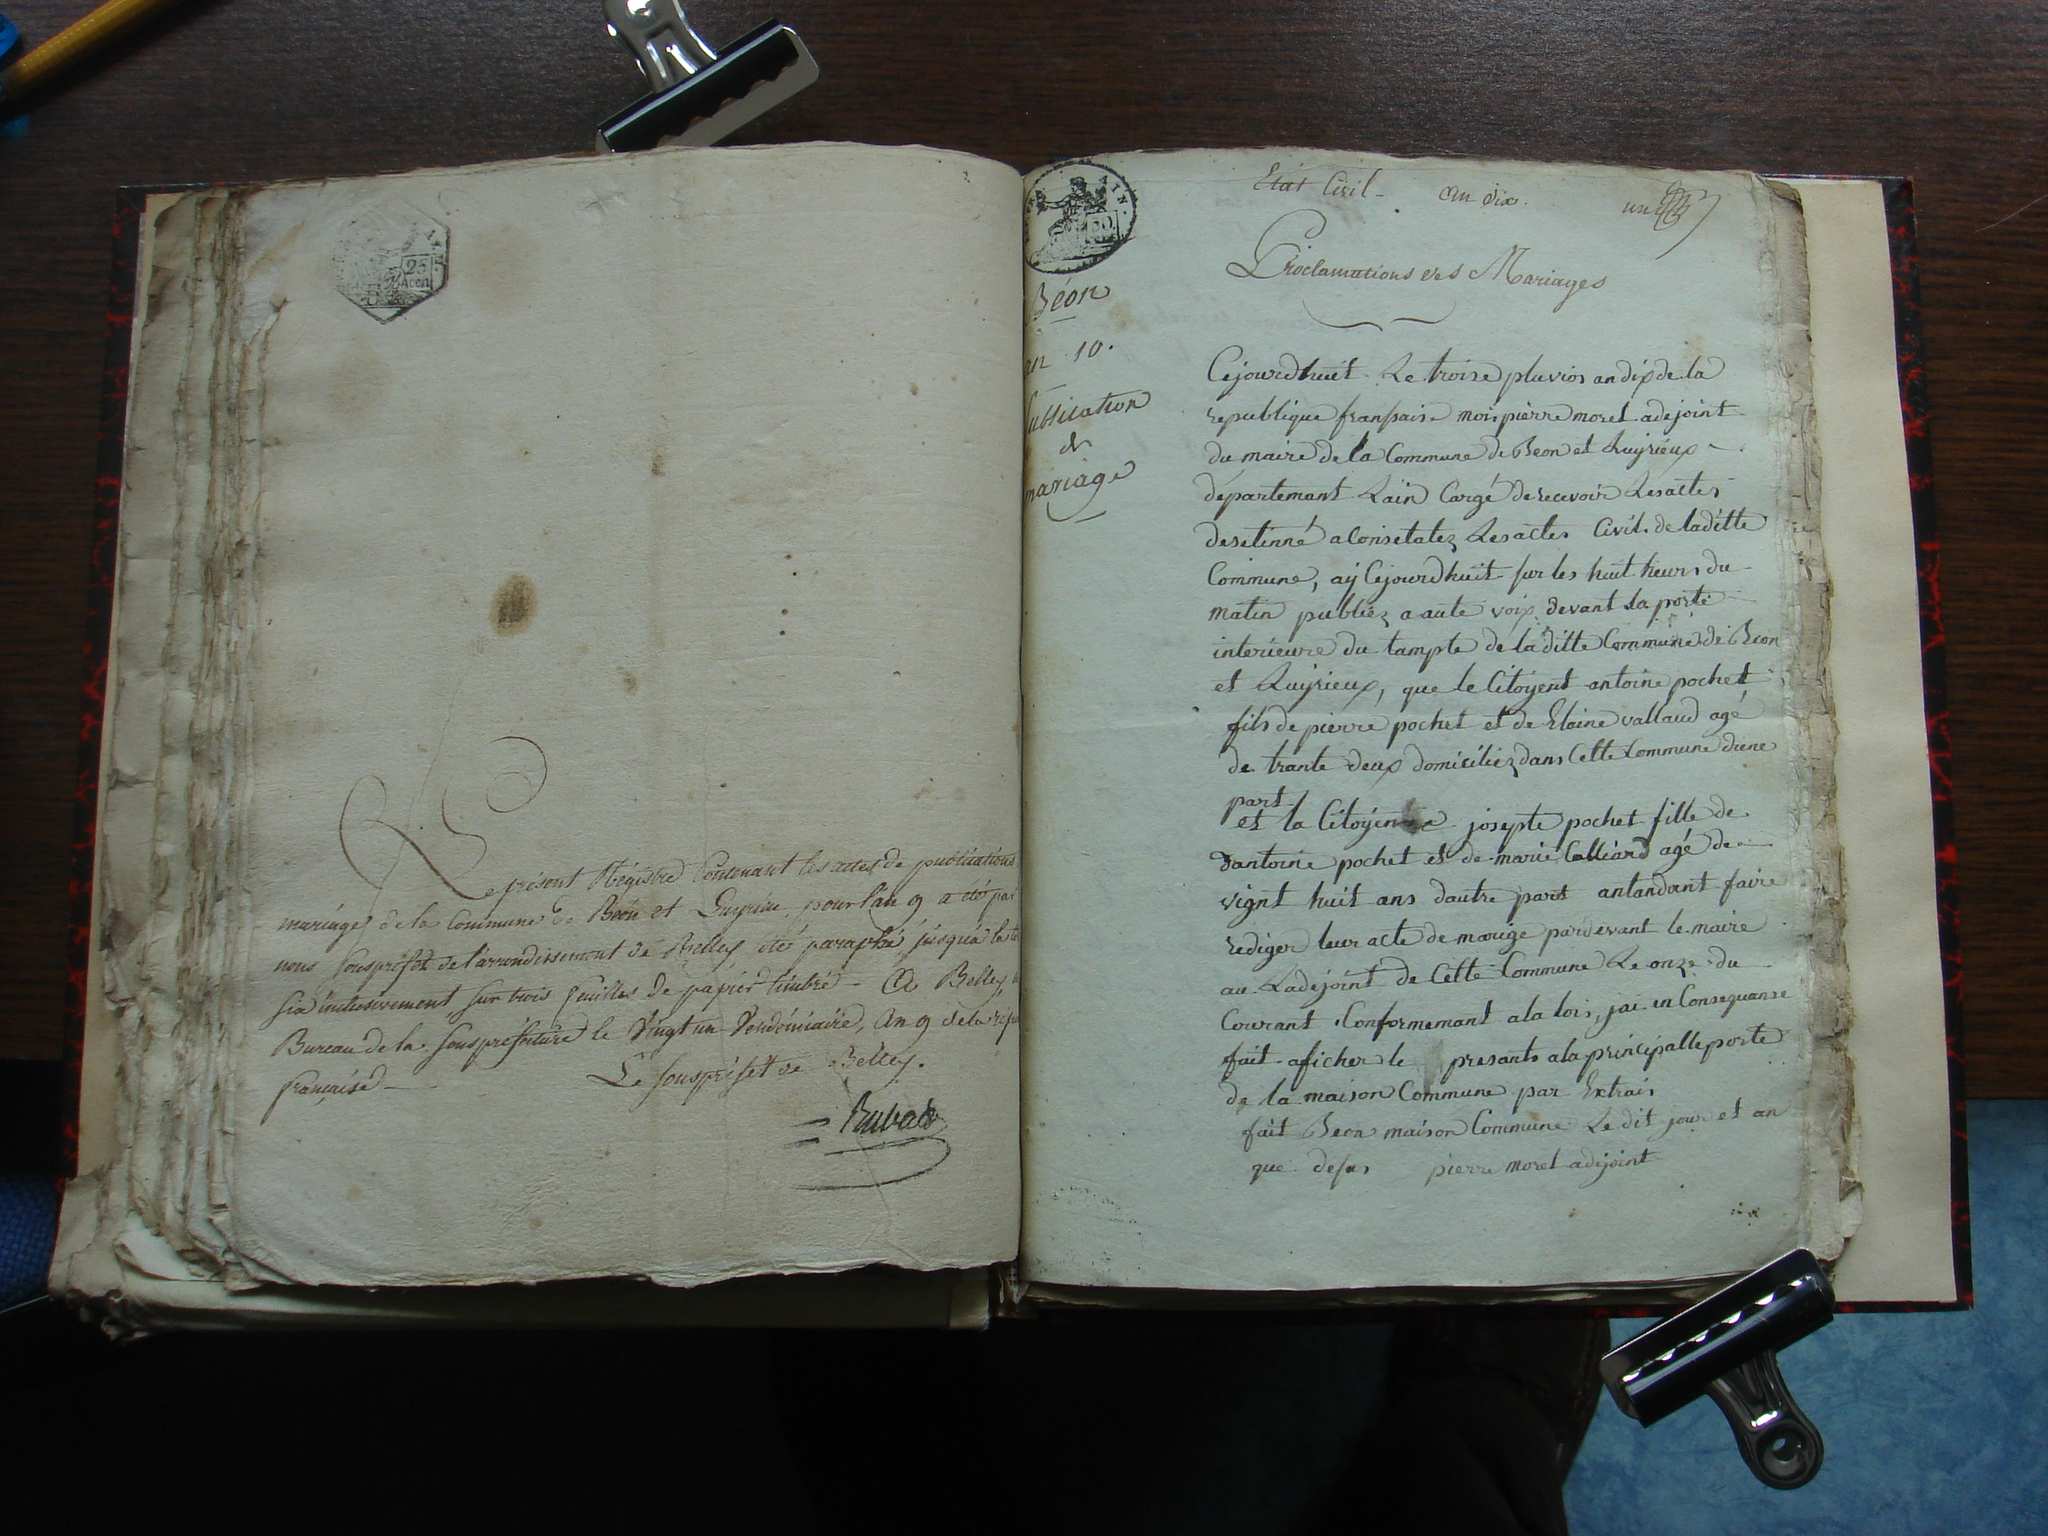 25
Le présent Régistre Contenant les actes de publications
mariages de la Commune de Béon et Luyrieu, pour l'an 9 a été par
nous Souspréfet de l'arrondissement de Belley été paraphé jusqu'a
six inclusivement sur trois feuilles de papier timbré - A Belley,
Bureau de la souspréfecture le Vingt un Vendémiaire, An 9 de la
française -
Le souspréfet de Belley.
Rubat
AIN.
Etat Civil - An dix. un
Proclamations des Mariages
Béon
an 10.
Publication
de
mariage
Cejourdhuit Le troise pluvios an dix de la
republique franssaise moi pierre morel adejoint
du maire de la Commune de Beon et Luyrieux -
département Lain Cargé de recevoir Les actes
desetinné a Consetatez Les actes Civil de laditte
Commune, aÿ Cejourdhuit sur les huit heurs du
matin publiez a aute voix devant la porte
interieure du tample de laditte Commune de Beon
et Luyrieux, que le Citoyent antoine pochet
fils de pierre pochet et de Elaine vallaud agé
de trante deux domiciliez dans Cette Commune dune
part
et la Citoyenne josepte pochet fille de
dantoine pochet et de marie Calliard agé de
vignt huit ans dautre part antandant faire
rediger leur acte de marige pardevant le maire
au Ladejoint de Cette Commune Le onze du
Courant Conformemant a la lois, jai en Consequanse
fait aficher le presants a la principalle porte
de la maison Commune par Extrais
fait Beon maison Commune Le dit jour et an
que desus pierre morel adejoint